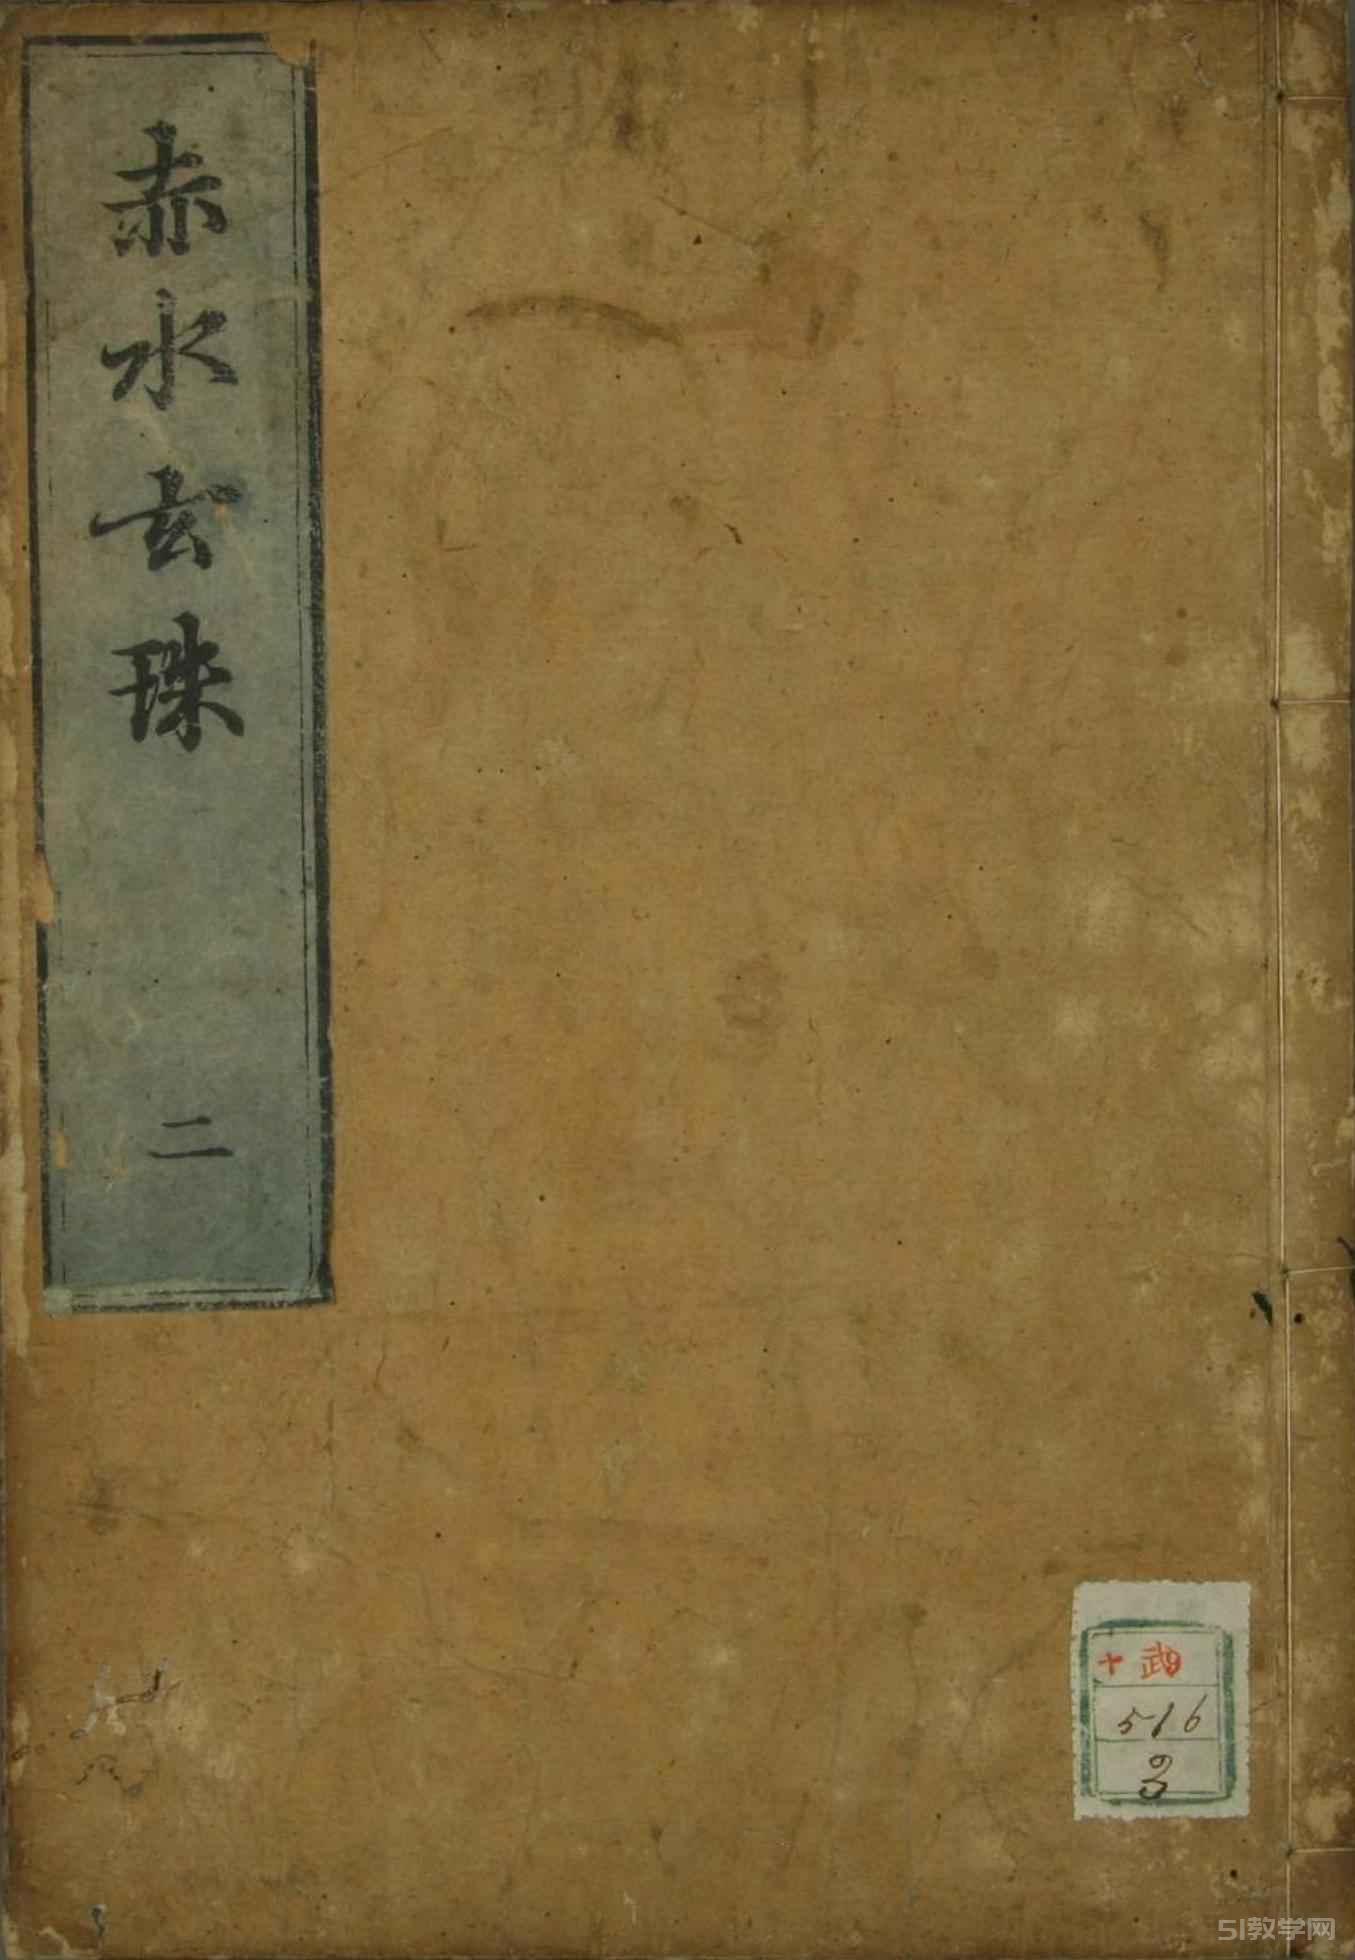 赤水玄珠
二
十 武
516
3
51教学网